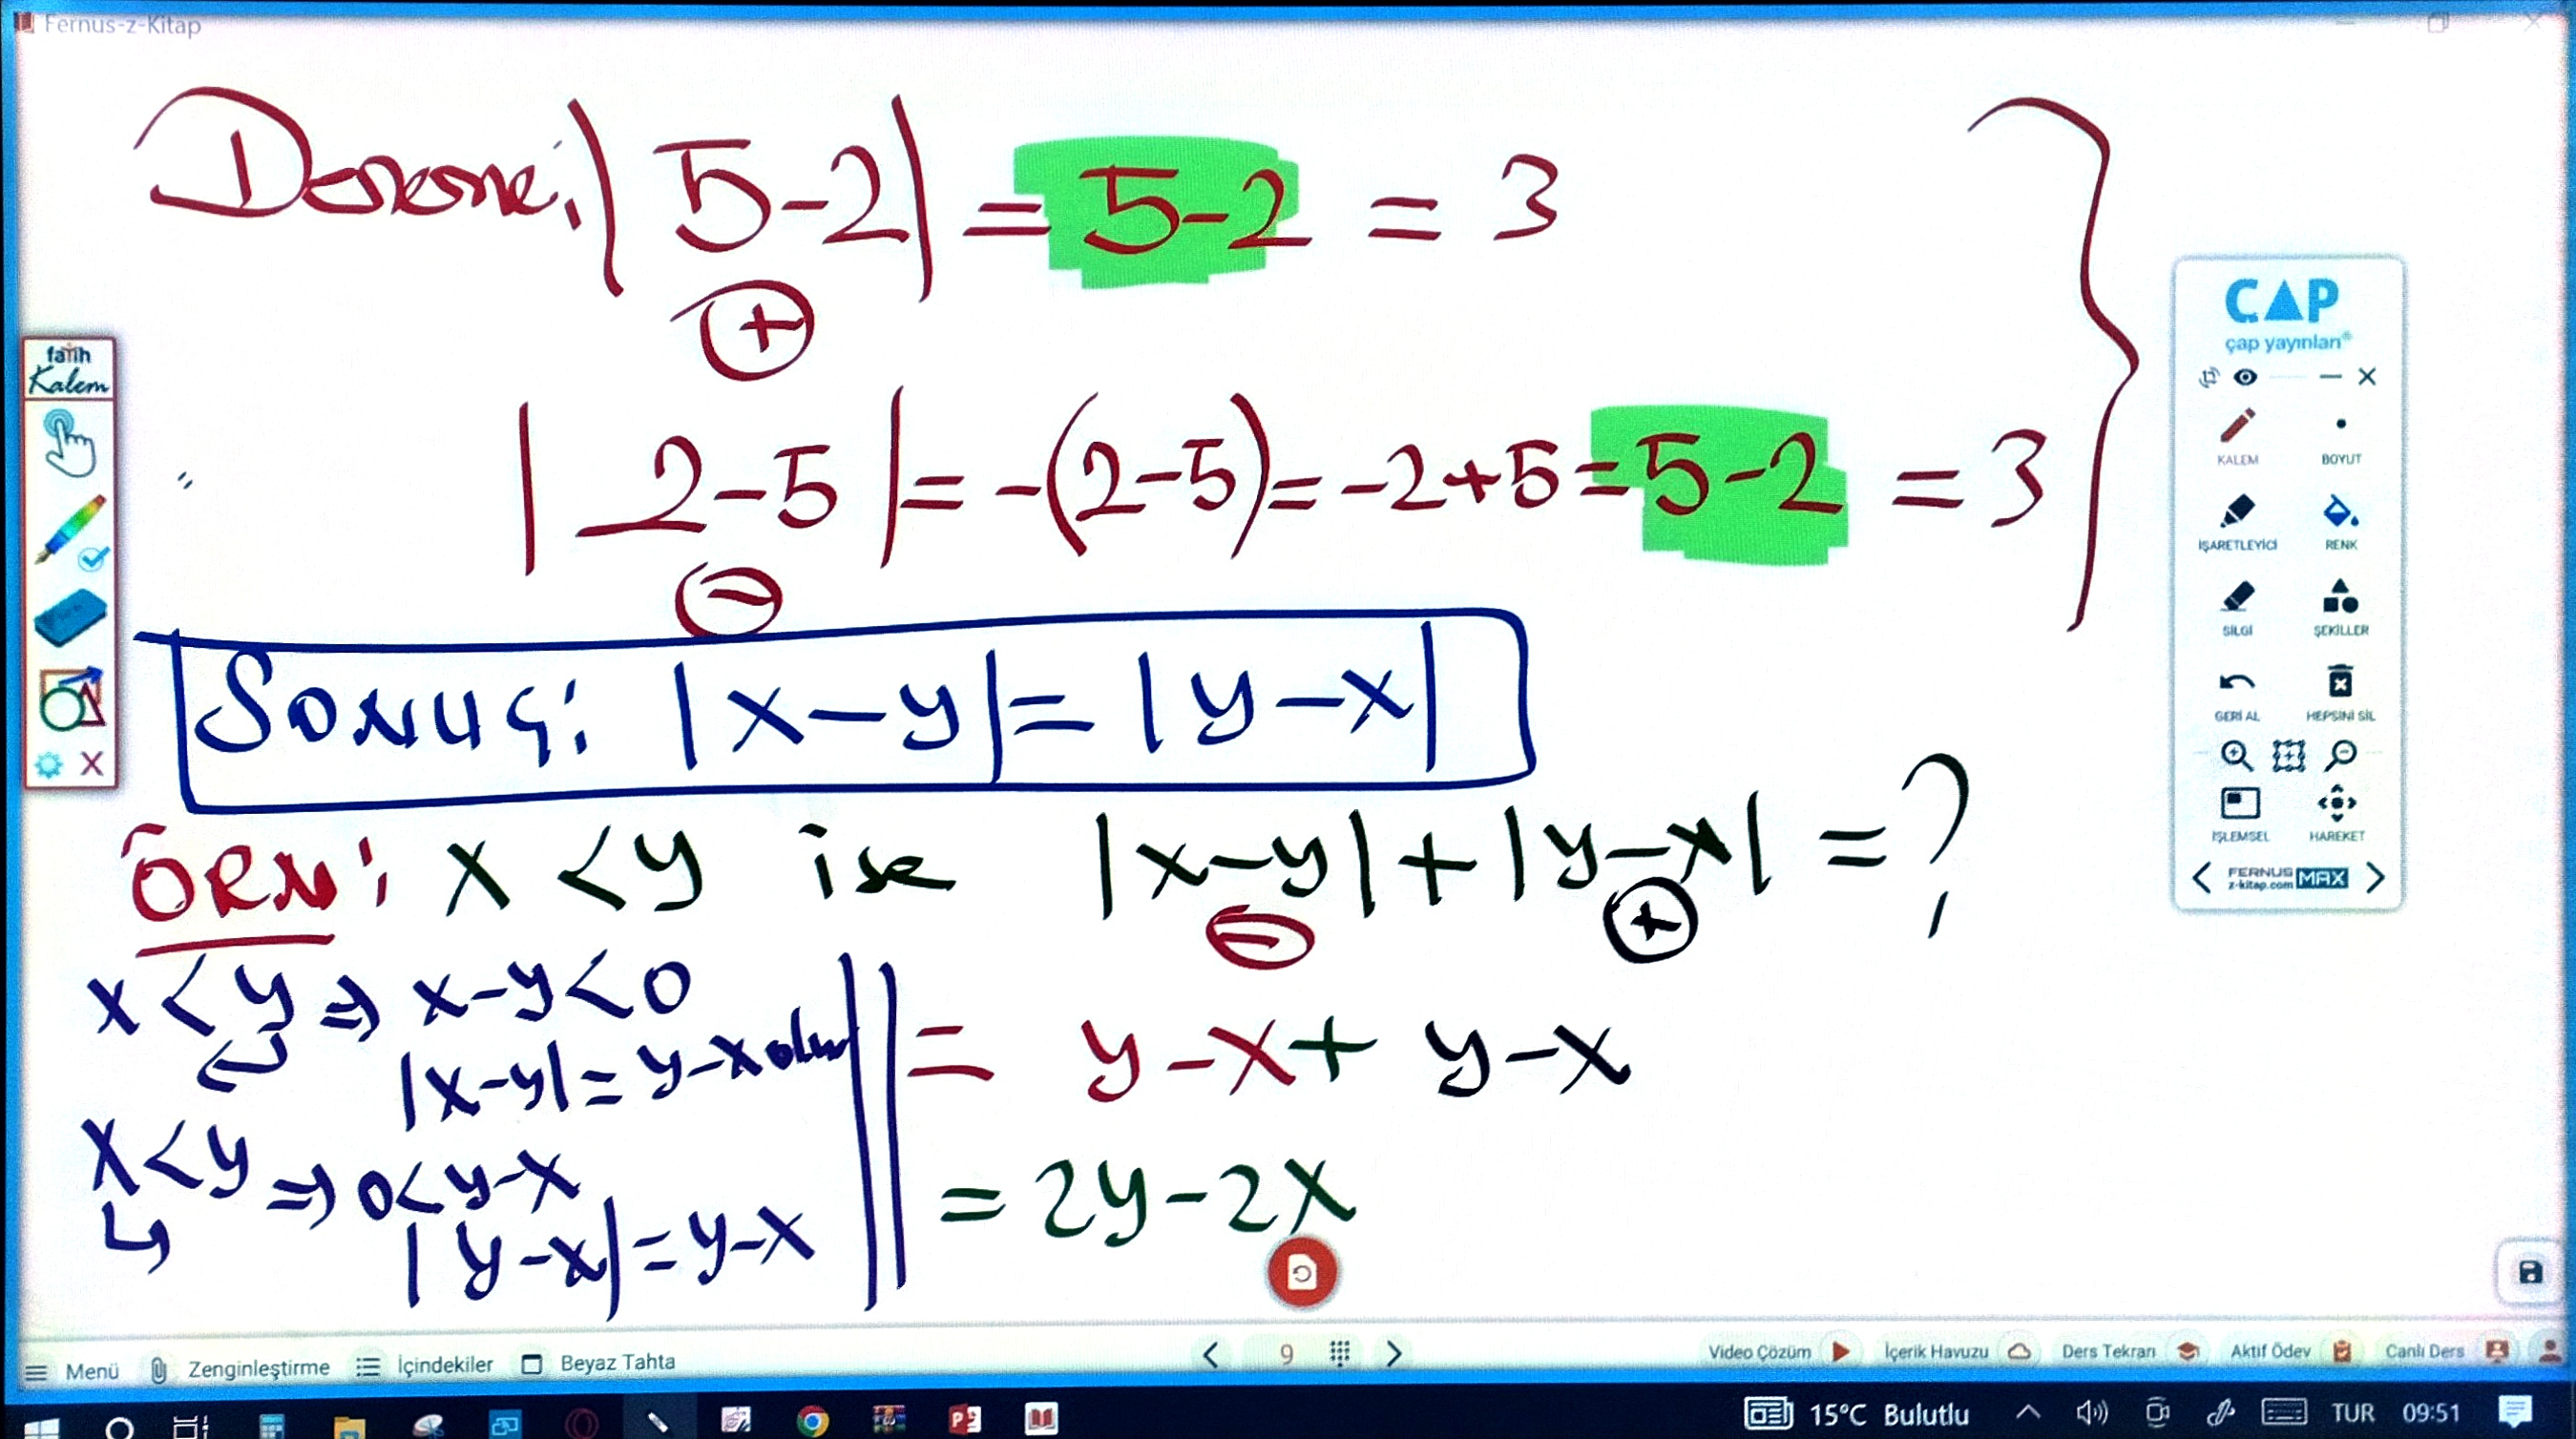 Fernus-z-Kitap
Deneme: |5-2| = 5-2 = 3
+
|2-5| = -(2-5) = -2+5 = 5-2 = 3
-
Sonuç: |x-y| = |y-x|
ÖRN: x < y ise |x-y| + |y-x| = ?
- +
x < y ⇒ x-y < 0
|x-y| = y-x olur
x < y ⇒ 0 < y-x
|y-x| = y-x
= y-x + y-x
= 2y-2x
fatih
Kalem
ÇAP
çap yayınları®
KALEM BOYUT
İŞARETLEYİCİ RENK
SİLGİ ŞEKİLLER
GERİ AL HEPSİNİ SİL
İŞLEMSEL HAREKET
FERNUS
z-kitap.com MAX
Menü Zenginleştirme İçindekiler Beyaz Tahta 9 Video Çözüm İçerik Havuzu Ders Tekrarı Aktif Ödev Canlı Ders
15°C Bulutlu TUR 09:51